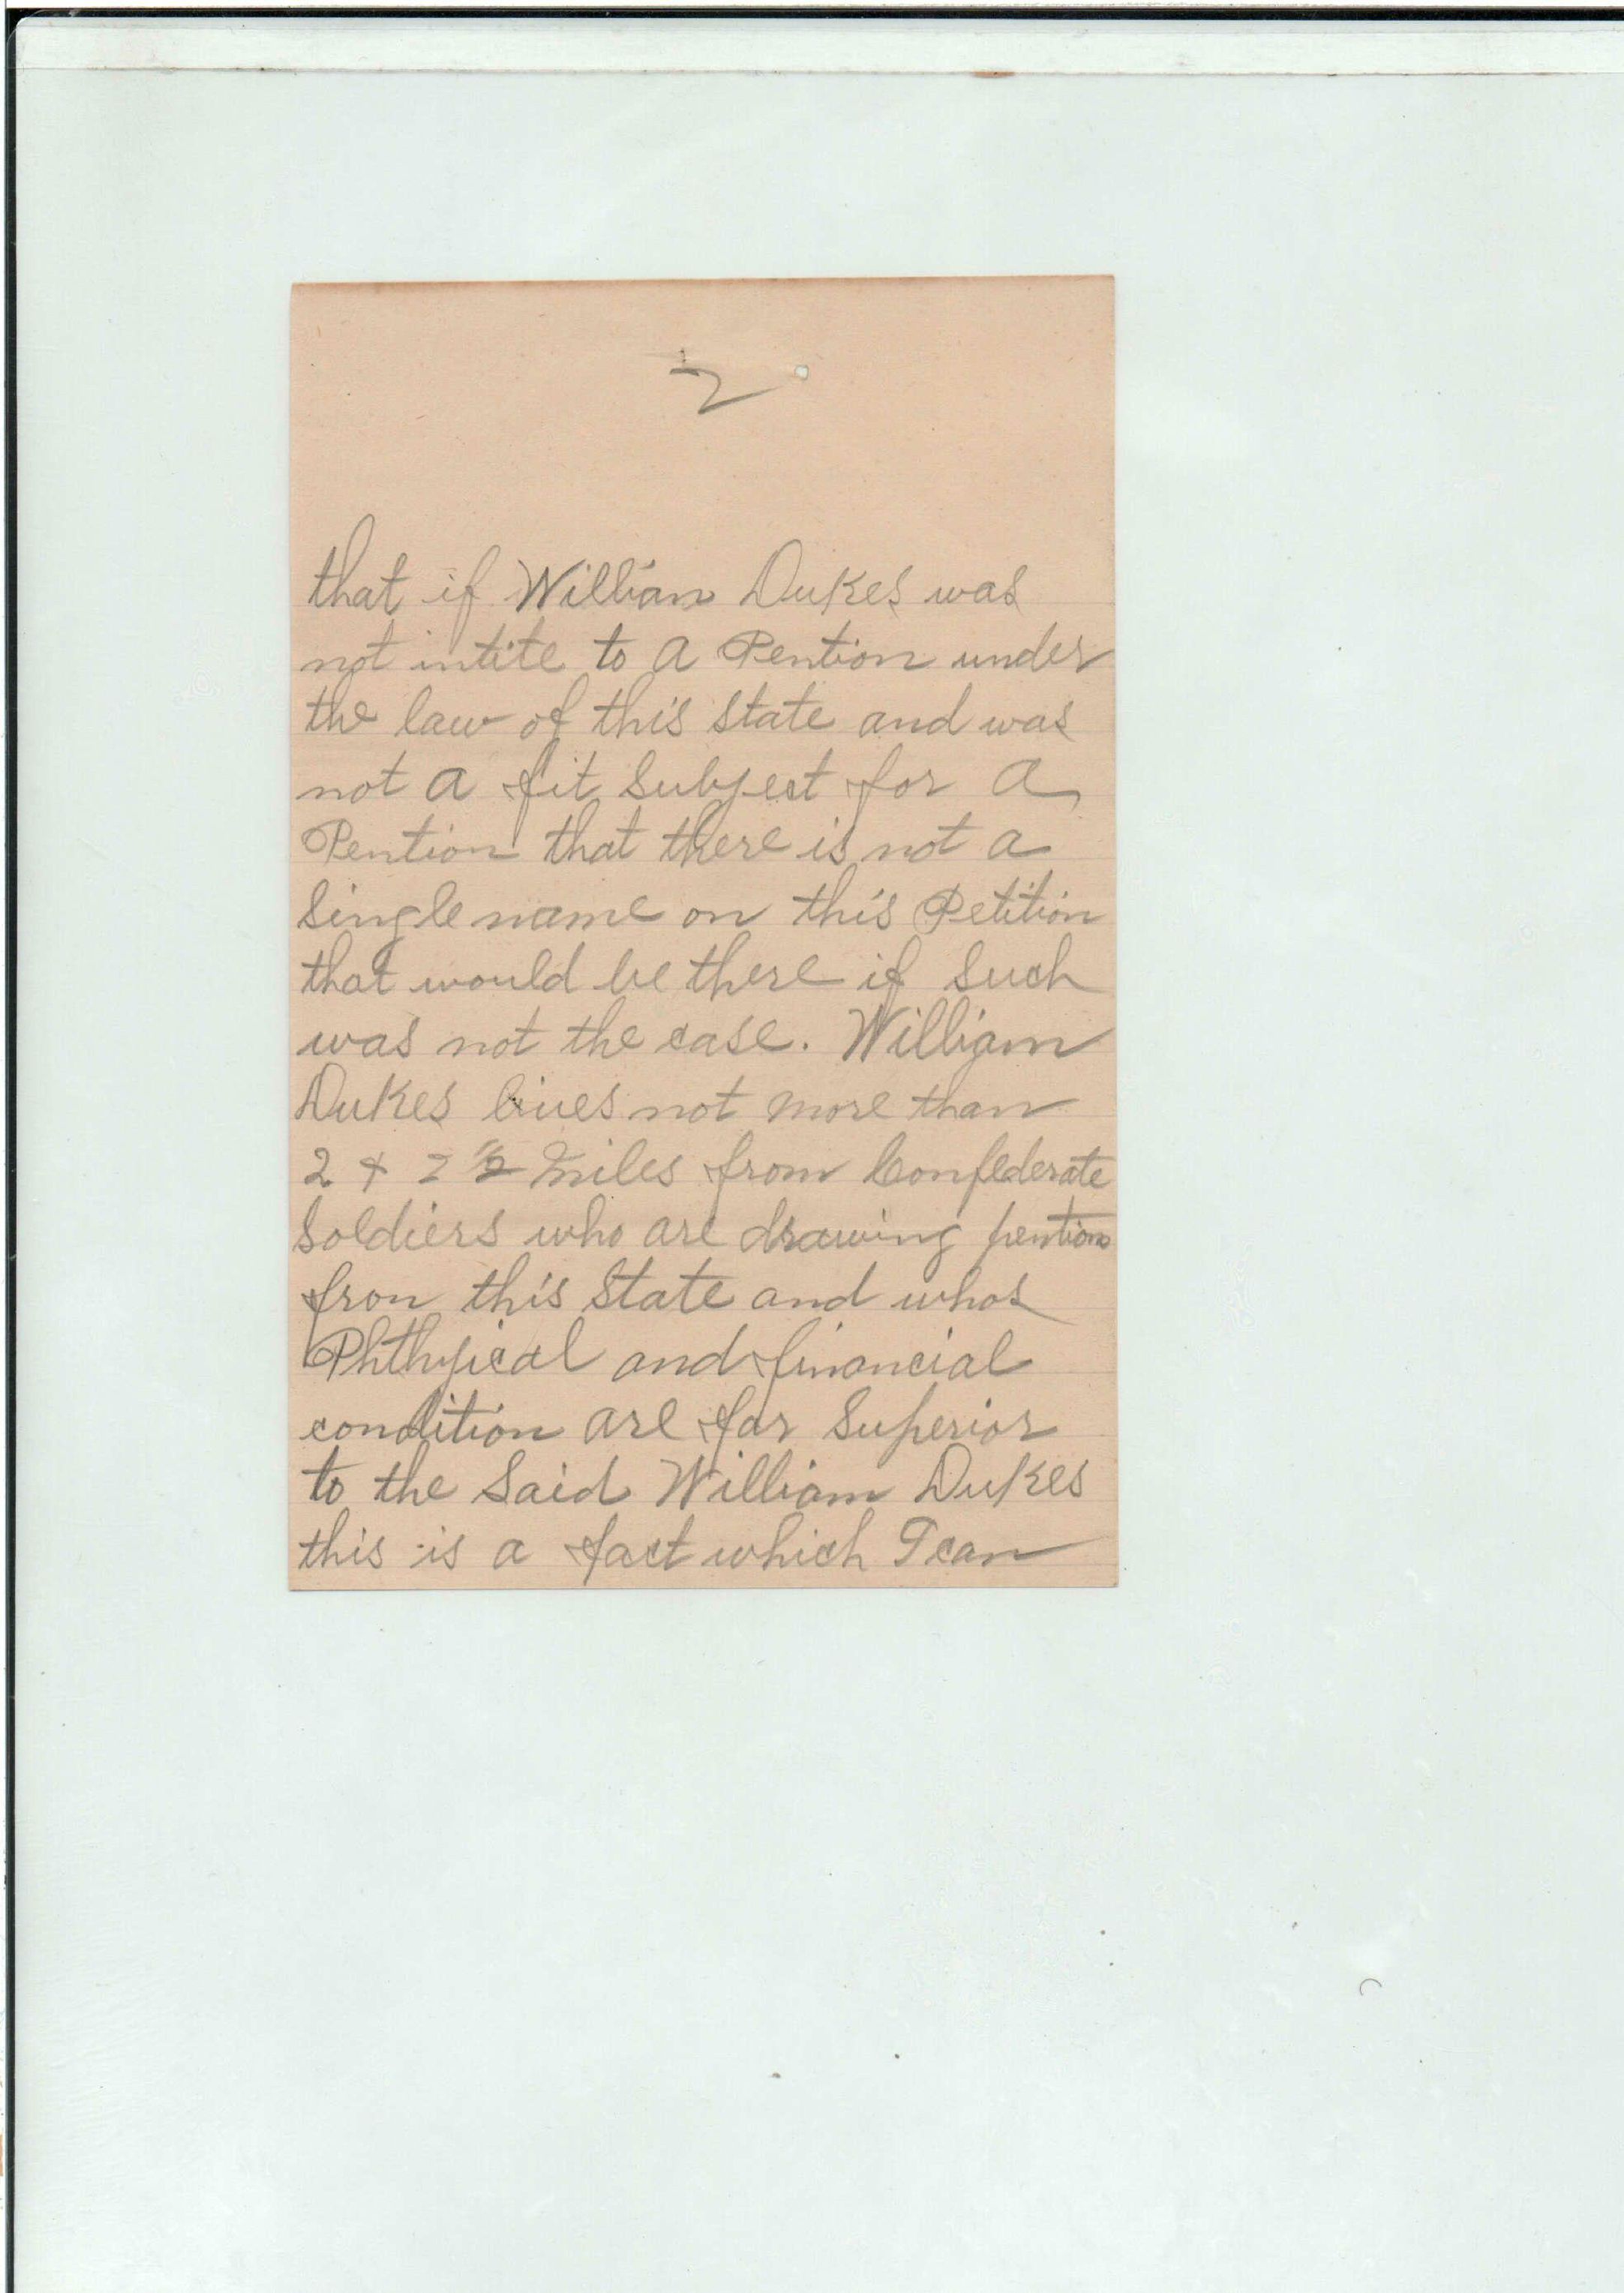 2
that if William Dukes was
not intite to A Pention under
the law of this State and was
not A fit Subject for A
Pention that there is not a
Single name on this Petition
that would be there if Such
was not the case. William
Dukes lives not more than
2 & 2 1/2 miles from Confederate
Soldiers who are drawing pentions
fron this State and whos
Phthyical and financial
condition are far Superior
to the Said William Dukes
this is a fact which I can